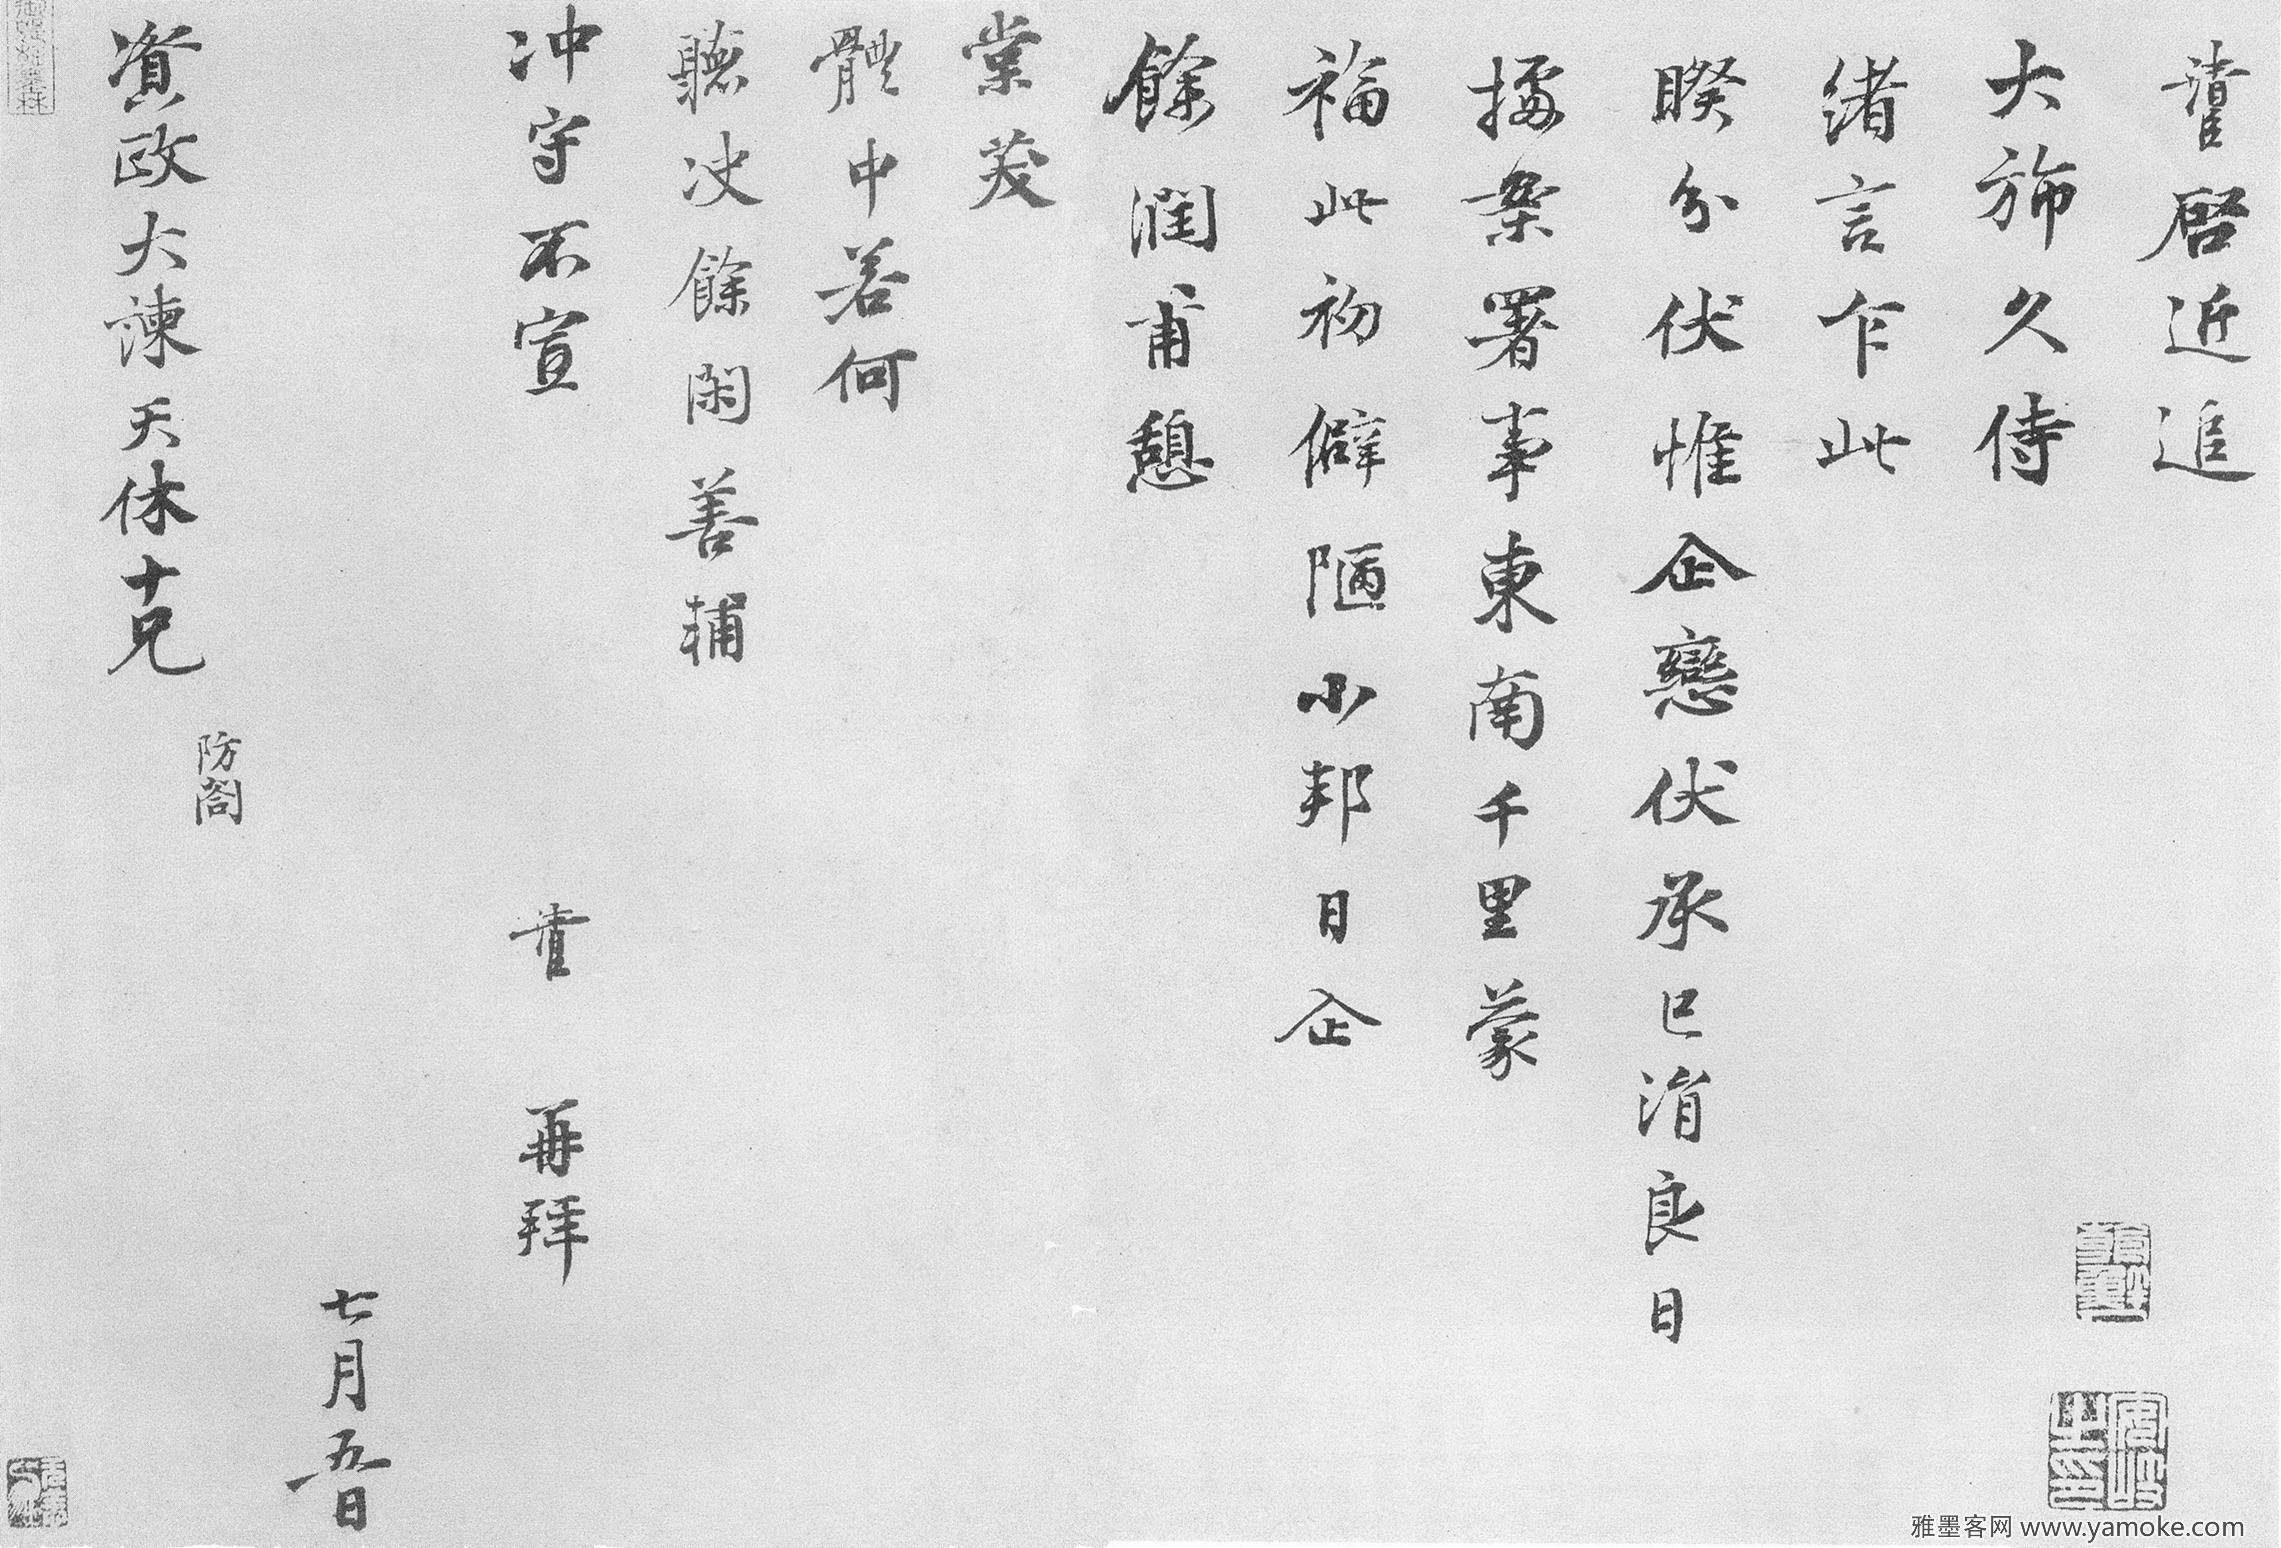 啓近追
大旆久侍
緒言乍此
睽分伏惟企戀伏承已涓良日
據案署事東南千里蒙
福此初僻陋小邦日企
餘潤甫憩
棠茇
體中若何
聽決餘閑善輔
冲守不宣 再拜
七月五日
資政大諫天休十兄
防閤
雅墨客网 www.yamoke.com